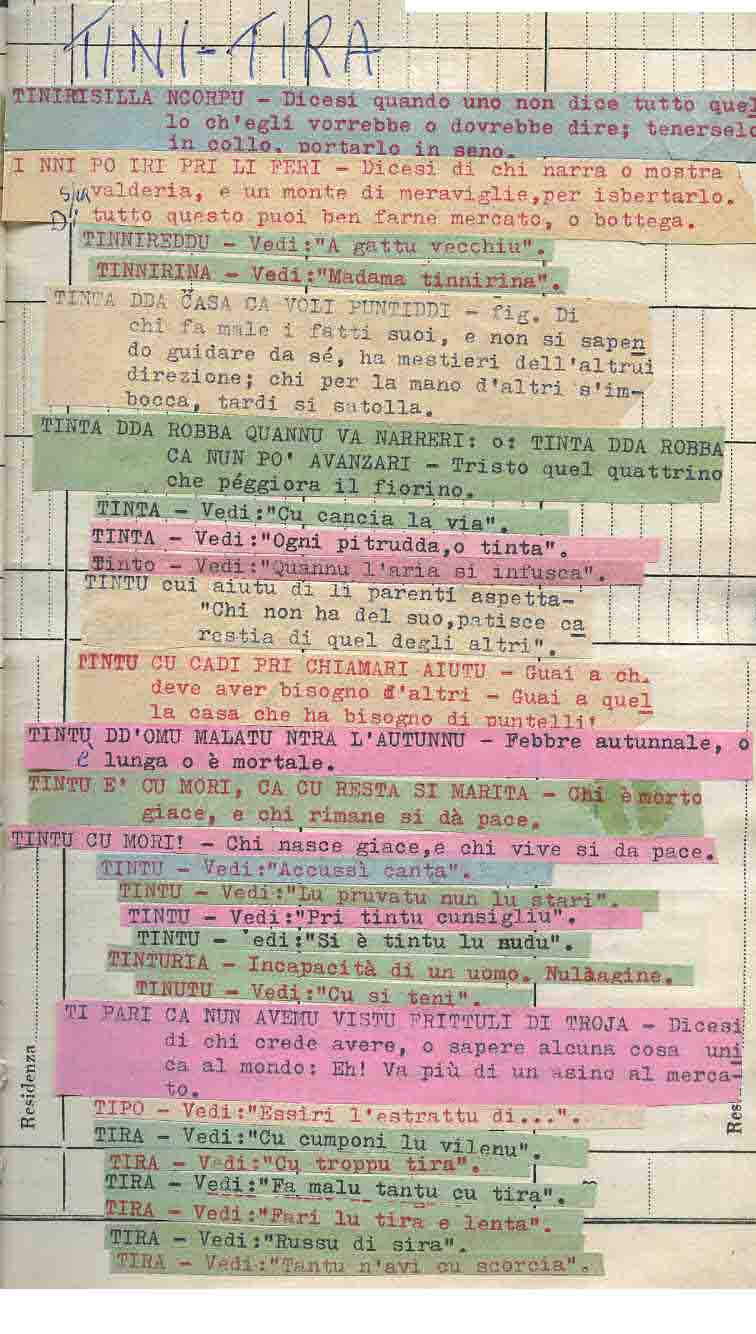 TINI-TIRA
TINIRISILLA NCORPU - Dicesi quando uno non dice tutto quel
lo ch'egli vorrebbe o dovrebbe dire; tenerselo
in collo, portarlo in seno.
I NNI PO IRI PRI LI FERI - Dicesi di chi narra o mostra
valderia, e un monte di meraviglie,per isbertarlo.
Di tutto questo puoi ben farne mercato, o bottega.
TINNIREDDU - Vedi:"A gattu vecchiu".
TINNIRINA - Vedi:"Madama tinnirina".
TINTA DDA CASA CA VOLI PUNTIDDI - fig. Di
chi fa male i fatti suoi, e non si sapen
do guidare da sé, ha mestieri dell'altrui
direzione; chi per la mano d'altri s'im-
bocca, tardi si satolla.
TINTA DDA ROBBA QUANNU VA NARRERI: o: TINTA DDA ROBBA
CA NUN PO' AVANZARI - Tristo quel quattrino
che péggiora il fiorino.
TINTA - Vedi:"Cu cancia la via".
TINTA - Vedi:"Ogni pitrudda,o tinta".
Tinto - Vedi:"Quannu l'aria si infusca".
TINTU cui aiutu di li parenti aspetta-
"Chi non ha del suo,patisce ca
restia di quel degli altri".
TINTU CU CADI PRI CHIAMARI AIUTU - Guai a ch.
deve aver bisogno d'altri - Guai a quel
la casa che ha bisogno di puntelli!
TINTU DD'OMU MALATU NTRA L'AUTUNNU - Febbre autunnale, o
è lunga o è mortale.
TINTU E' CU MORI, CA CU RESTA SI MARITA - Chi è morto
giace, e chi rimane si dà pace.
TINTU CU MORI! - Chi nasce giace,e chi vive si da pace.
TINTU - Vedi:"Accussì canta".
TINTU - Vedi:"Lu pruvatu nun lu stari".
TINTU - Vedi:"Pri tintu cunsigliu".
TINTU - edi:"Si è tintu lu nudu".
TINTURIA - Incapacità di un uomo. Nulàagine.
TINUTU - Vedi:"Cu si teni".
TI PARI CA NUN AVEMU VISTU FRITTULI DI TROJA - Dicesi
di chi crede avere, o sapere alcuna cosa uni
ca al mondo: Eh! Va più di un asino al merca-
to.
Residenza
Res
TIPO - Vedi:"Essiri l'estrattu di...".
TIRA - Vedi:"Cu cumponi lu vilenu".
TIRA - Vedi:"Cu troppu tira".
TIRA - Vedi:"Fa malu tantu cu tira".
TIRA - Vedi:"Fari lu tira e lenta".
TIRA - Vedi:"Russu di sira".
TIRA - Vedi:"Tantu n'avi cu scorcia".